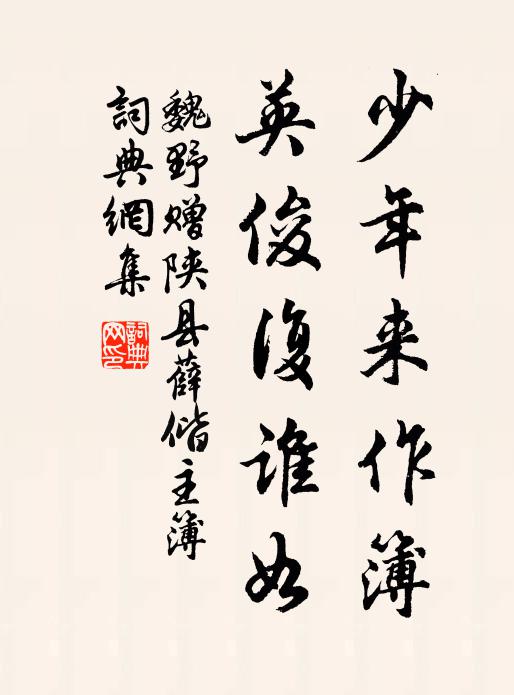 少年来作簿
英俊復誰如
魏野赠陝县薛偕主簿
詞典網集
詞典網印